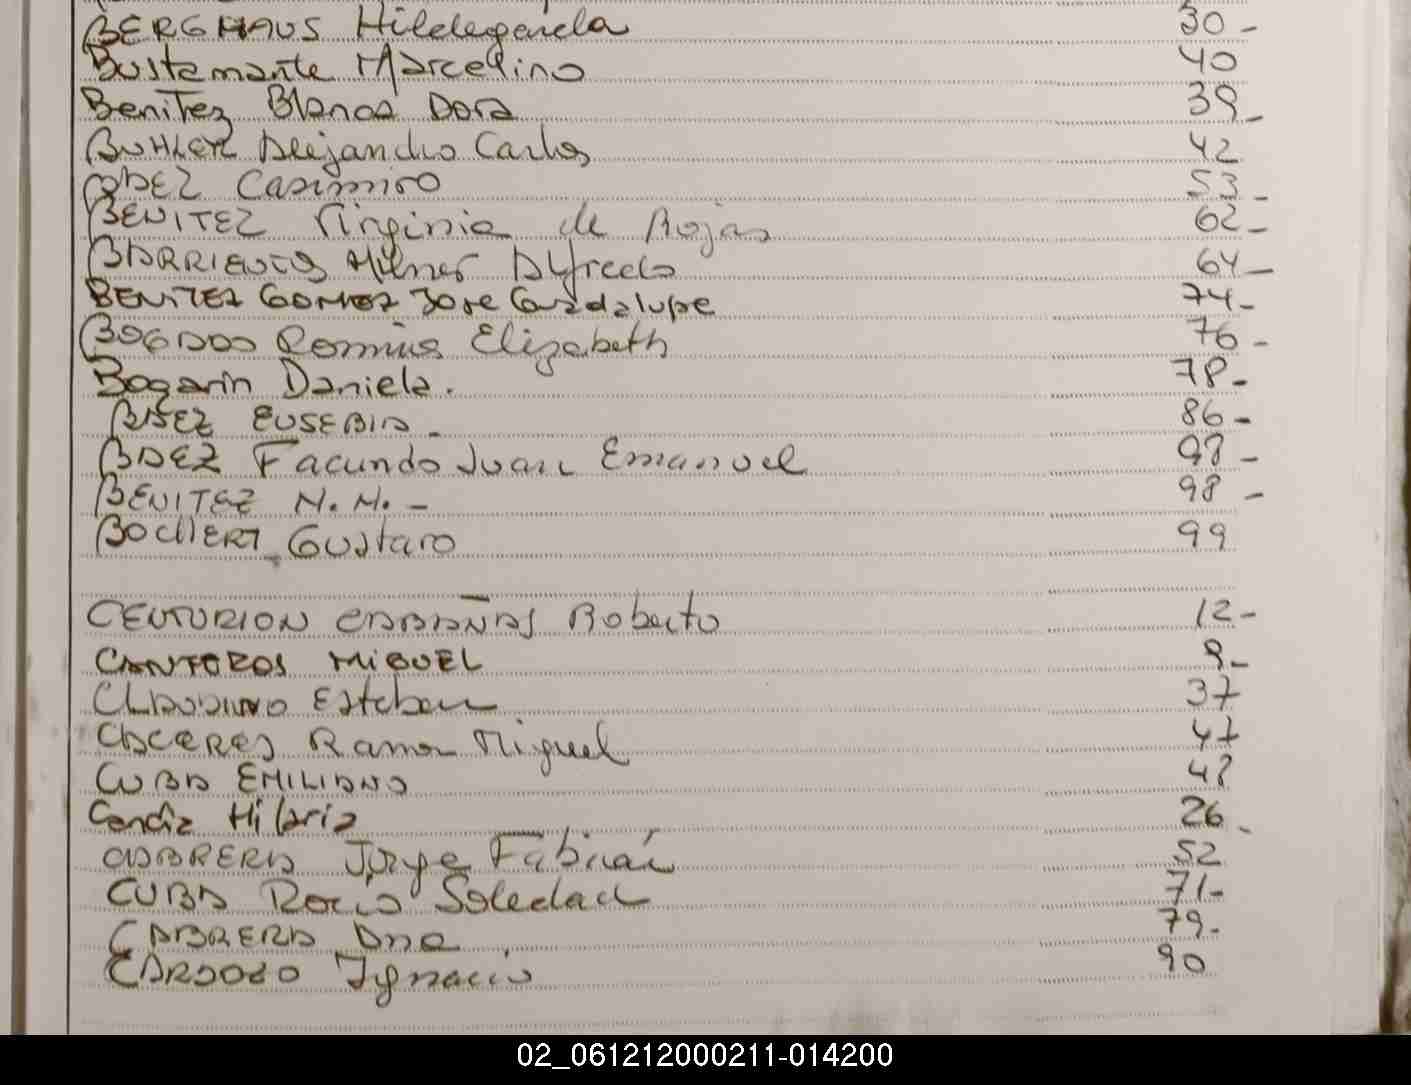 BERGHAUS Hildegarda 30-
Bustamante Marcelino 40
Benitez Blanca Dora 39-
BUHLER Alejandro Carlos 42
BAEZ Casimiro 53-
BENITEZ Virginia de Rojas 62-
BARRIENTOS Milner Alfredo 64-
BENITEZ GOMEZ Jose Guadalupe 74-
BOGADO Romina Elizabeth 76-
Bogarin Daniela. 78-
BAEZ EUSEBIA- 86-
BAEZ Facundo Juan Emanuel 97-
BENITEZ N.N.- 98-
BOCHERT Gustavo 99
CENTURION CABAÑAS Roberto 12-
CANTEROS MIGUEL 9-
CLAUDINO Esteban 37
CACERES Ramon Miguel 47
CUBA EMILIANO 48
Candia Hilaria 26-
CABRERA Jorge Fabián 52
CUBA Rocio Soledad 71-
CABRERA Ana 79-
CARDOZO Ignacio 90
02_061212000211-014200